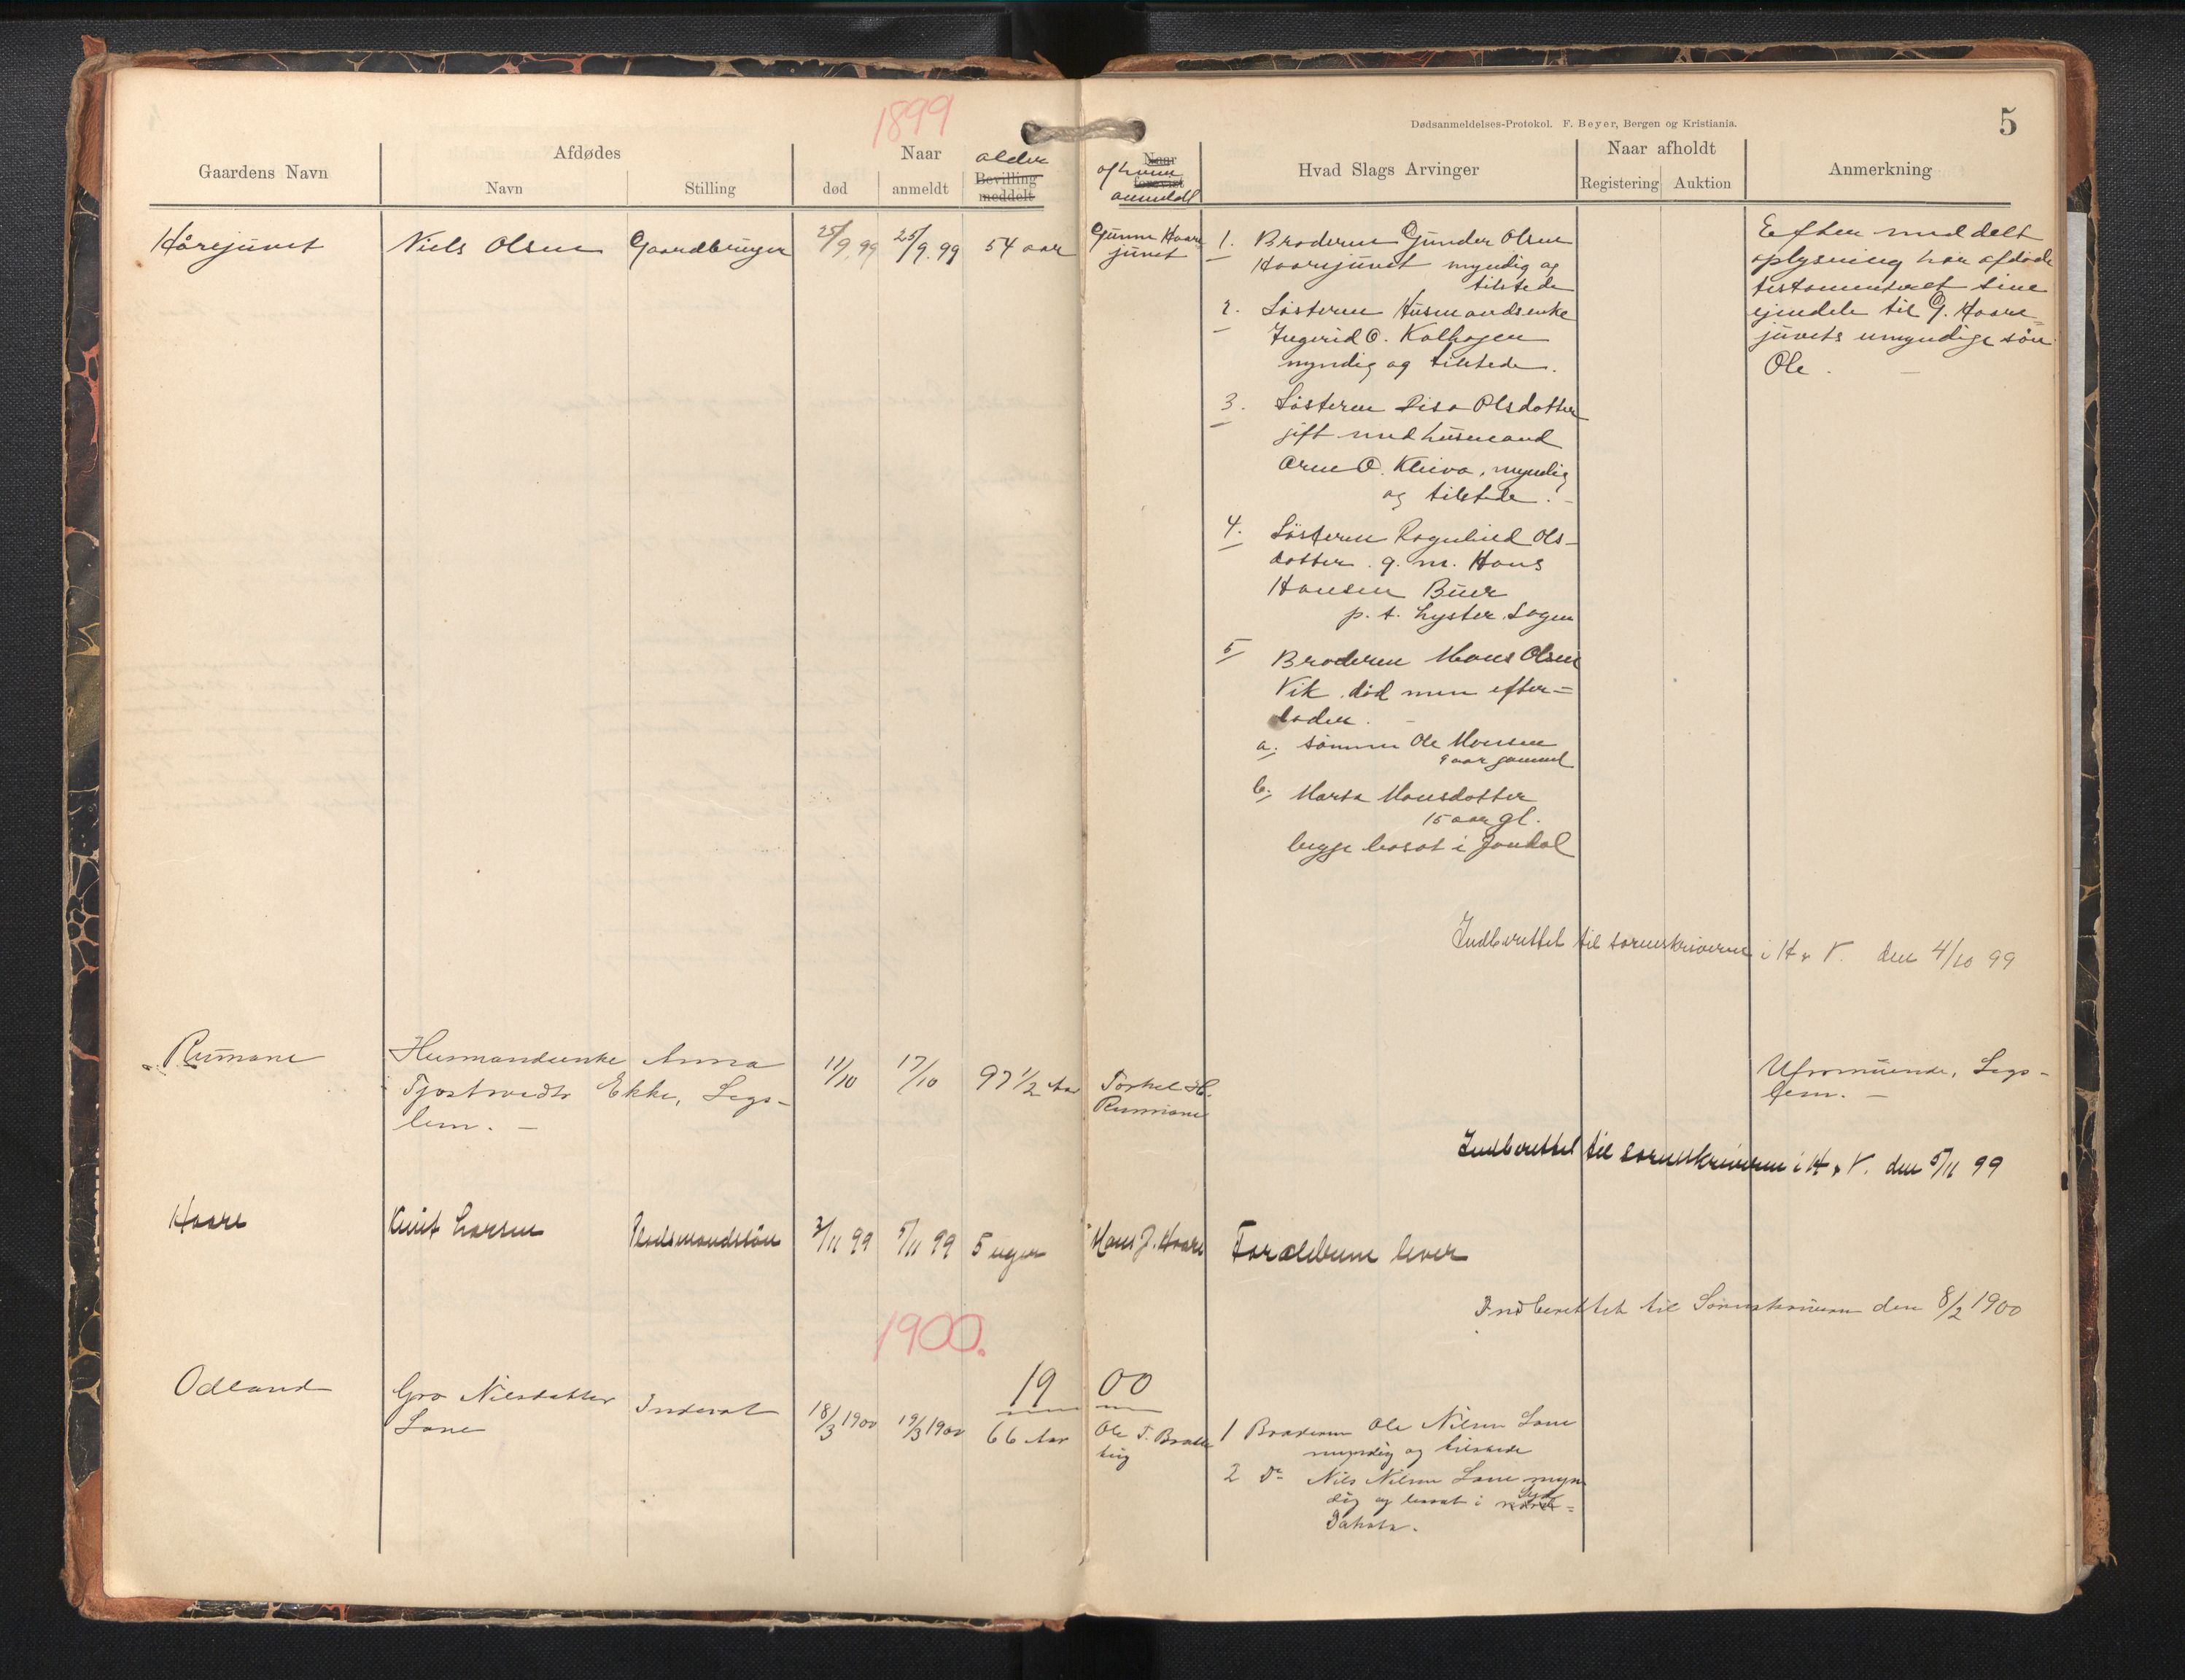 1899
Dødsanmeldelses-Protokol. F. Beyer, Bergen og Kristiania.
5
Gaardens Navn
Afdødes
Navn
Stilling
Naar
død
anmeldt
alder
Bevilling
meddelt
Naar
forevist
af hvem
anmeldt
Hvad Slags Arvinger
Naar afholdt
Registering
Auktion
Anmerkning
Hårejuvet
Niels Olsen
Gaardbruger
25/9.99
25/9.99
54 aar
Gunne Haare
juvet
1. Broderen Gunder Olsen
Haarejuvet myndig og
tilstede
2. Søsteren Husmandsenke
Ingerid O. Kalhagen
myndig og tilstede.
3. Søsteren Lisa Olsdotter
gift med husmand
Arne O. Kleiva, myndig
og tilstede. -
4. Søsteren Ragnhild Ols-
dotter. g. m. Hans
Hansen Buer
p. t. Lyster. Sogn
5 Broderen Mons Olsen
Vik død men efter=
lader. -
a. sønnen Ole Monsen
9 aar gammel
b. Marta Monsdotter
15 aar gl.
begge bosat i Jondal
Efter meddelt
oplysning har afdøde
testamenteret sine
ejendele til G. Haare=
juvets umyndige søn
Ole. -
Indberettet til sorenskriveren i H & V. den 4/10 99
Rumane
Husmandsenke Anna
Tjostvedtr Ekke, Legs-
lem. -
11/10
17/10
97 1/2 Aar
Torkel H.
Rumane
Uformuende, Legs-
lem. -
Indberettet til sorenskriveren i H & V. den 5/11 99
Haare
Knut Larsen
Pladsmandssøn
3/11 99
5/11 99
5 uger
Hans J. Haare
Forældrene lever
Indberettet til Sorenskriveren den 8/2 1900
1900.
1900
Odland
Gro Nilsdatter
Lone
Inderst
18/3 1900
19/3 1900
66 Aar
Ole T. Bratte
teig
1 Broderen Ole Nilsen Lone
myndig og tilstede
2 Do Nils Nilsen Lone myn
dig og bosat i Nord Syd=
Dakota.